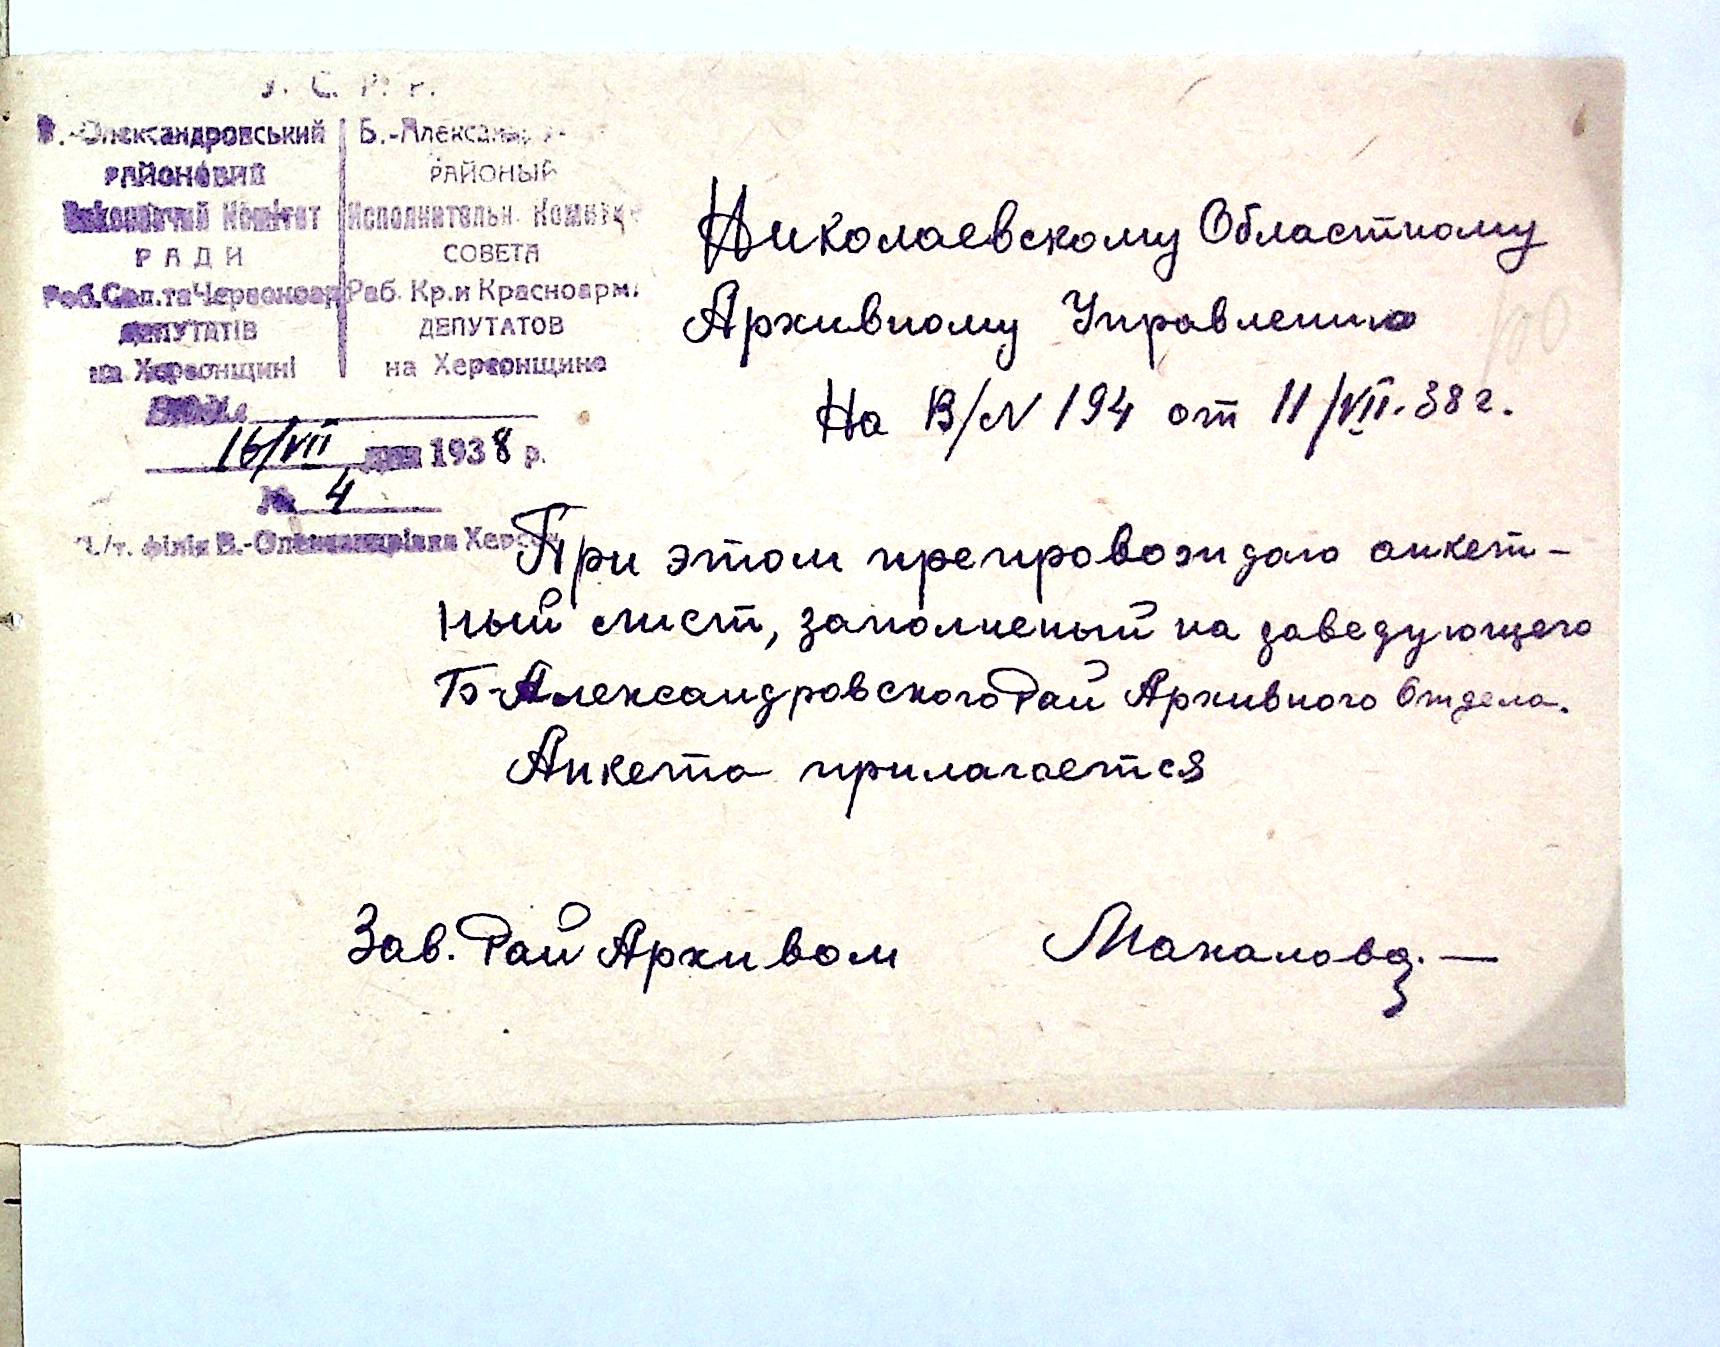 У. С. Р. Р.
В.-Олександровський
РАЙОНОВИЙ
Виконавчий Комітет
РАДИ
Роб. Сел. та Червоноар
ДЕПУТАТІВ
на Херсонщині
Б.-Александр
РАЙОНЫЙ
Исполнительн. Комите
СОВЕТА
Раб. Кр. и Красноарм.
ДЕПУТАТОВ
на Херсонщине
16/VII дня 1938 р.
№ 4
П./т. філія В.-Олександрівка Херсон
Николаевскому Областному
Архивному Управлению
На В/N 194 от 11/VII-38 г.
При этом препровождаю анкет-
ный лист, заполненый на заведующего
Б-Александровского Рай Архивного Отдела.
Анкета прилагается
Зав. Рай Архивом Макалова.—